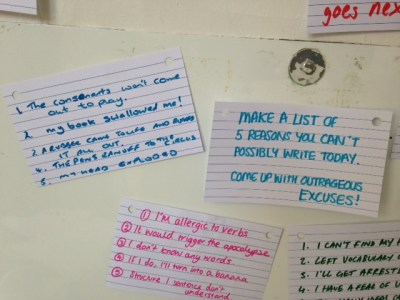 goes nex
1. The consonants won't come
out to play.
2. my book swallowed me!
3. A RUBBER CAME TO LIFE AND RUBBED
IT ALL OUT.
4. THE PENS RAN OFF TO THE CIRCUS
5. MY HEAD EXPLODED
MAKE A LIST OF
5 REASONS YOU CAN'T
POSSIBLY WRITE TODAY.
COME UP WITH OUTRAGEOUS
EXCUSES!
① I'm allergic to verbs
② It would trigger the apocalypse
③ I don't know any words
④ If I do, I'll turn into a banana
⑤ Structure I sentence don't
understand
1. I CAN'T FIND MY
2. LEFT VOCABULARY
3. I'LL GET ARREST
4. I HAVE A FEAR OF